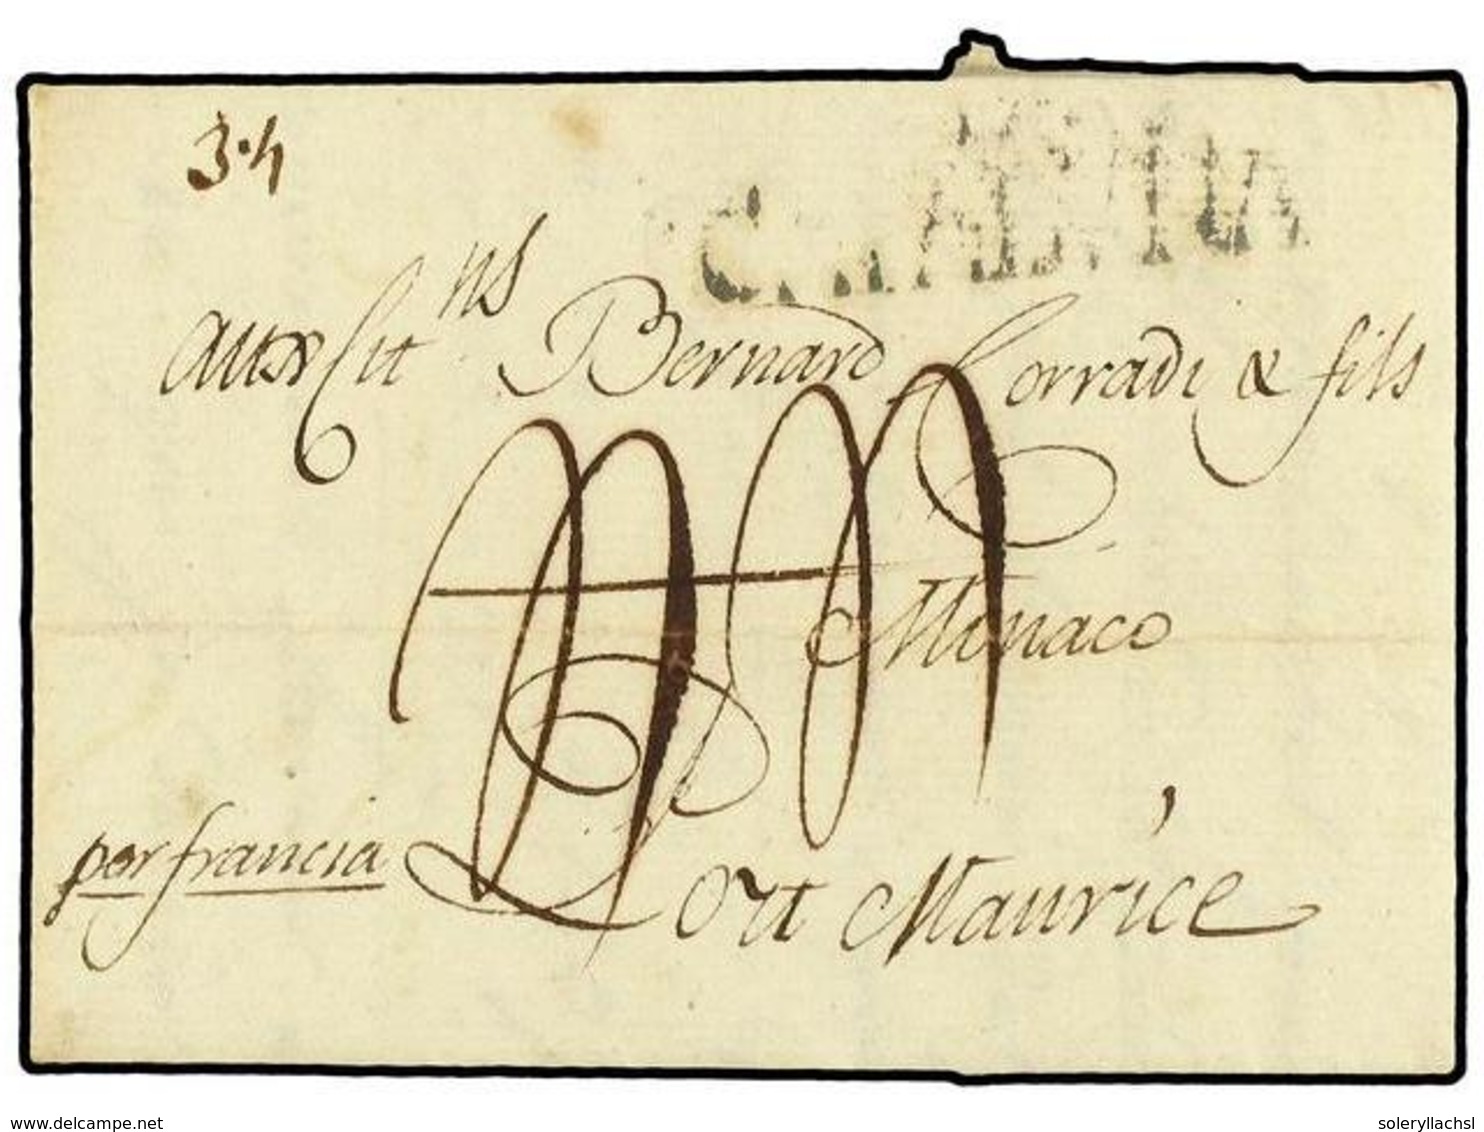 3·4
aux Cit ns Bernard Corradi & fils
Monaco
por francia
Port Maurice
delcampe.net
soleryllachsl